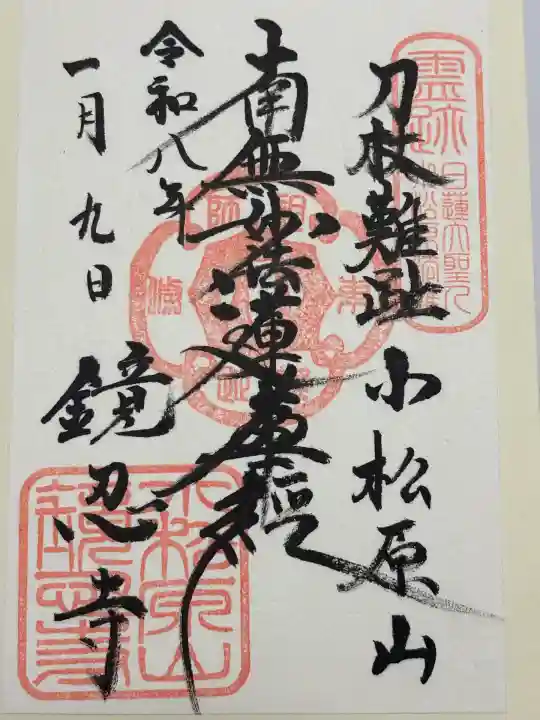 刀杖難趾 小松原山
南無妙法蓮華経
令和八年
一月九日
鏡忍寺
霊跡
日蓮大聖人
小松原山
鏡忍寺